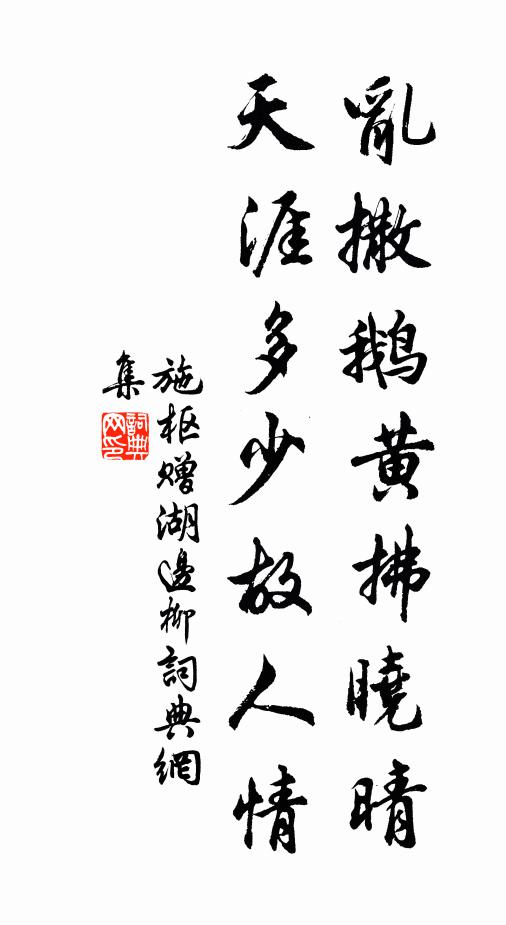 亂撒鹅黄拂曉晴
天涯多少故人情
施枢赠湖邊柳詞典網
集
詞典
网印